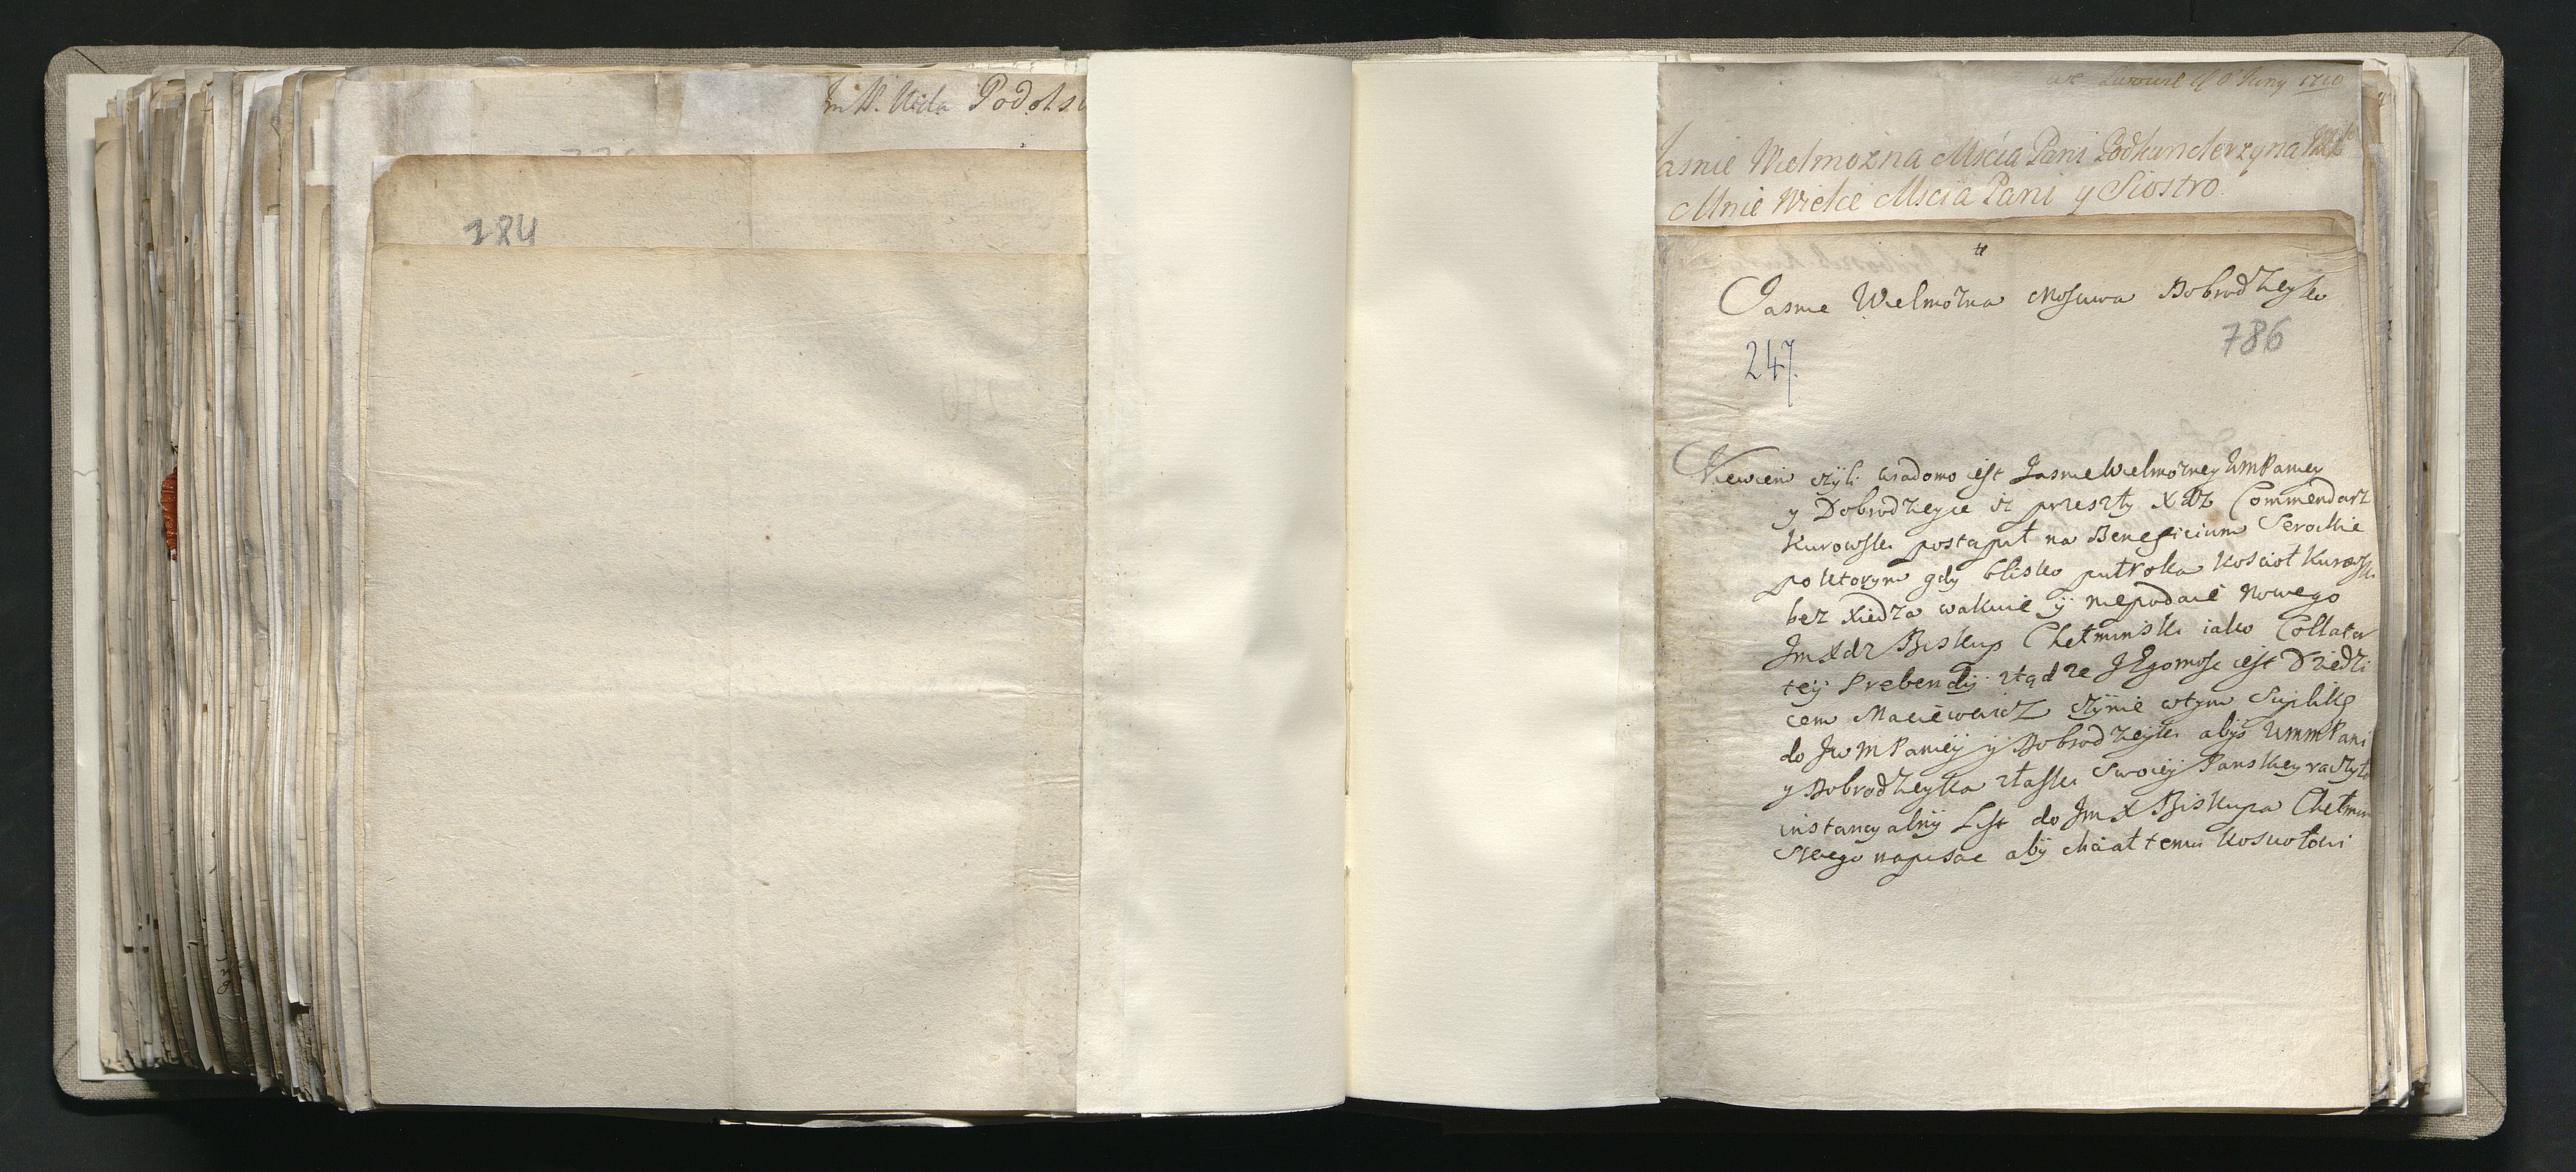 Podols
784
we Lwowie 1710
Jasnie Wielmożna Mścia Pani Podkanclerzyna
Mnie Wielce Mscia Pani y Siostro.
Jasnie Wielmozna Mosciwa Dobrodzeyko
247.
786
Niewiem czyli wiadomo iest JasnieWielmozney UmPaniey
y Dobrodzeyce iz przeszły Xdz Commendarz
Kurowski postąpił na Beneficium Serockie
po ktorym gdy blisko pułroka koscioł Kurowski
bez Xiedza wakuie ÿ niepodaie nowego
Jm Xdz Biskup Chełminski iako Collator
teÿ Prebendÿ ztąd ze JEgomosc iest Dziedzi
cem Maciewicz czÿnie wtym Suplikę
do Jw m Panieÿ ÿ Dobrodzeyki abÿs UmmPani
y Dobrodzeyka złaski Swoieÿ Panskiey raczyła
instancyalnÿ List do Jm X Biskupa Chełmin
skiego napisac abÿ chciał temu kosciołowi